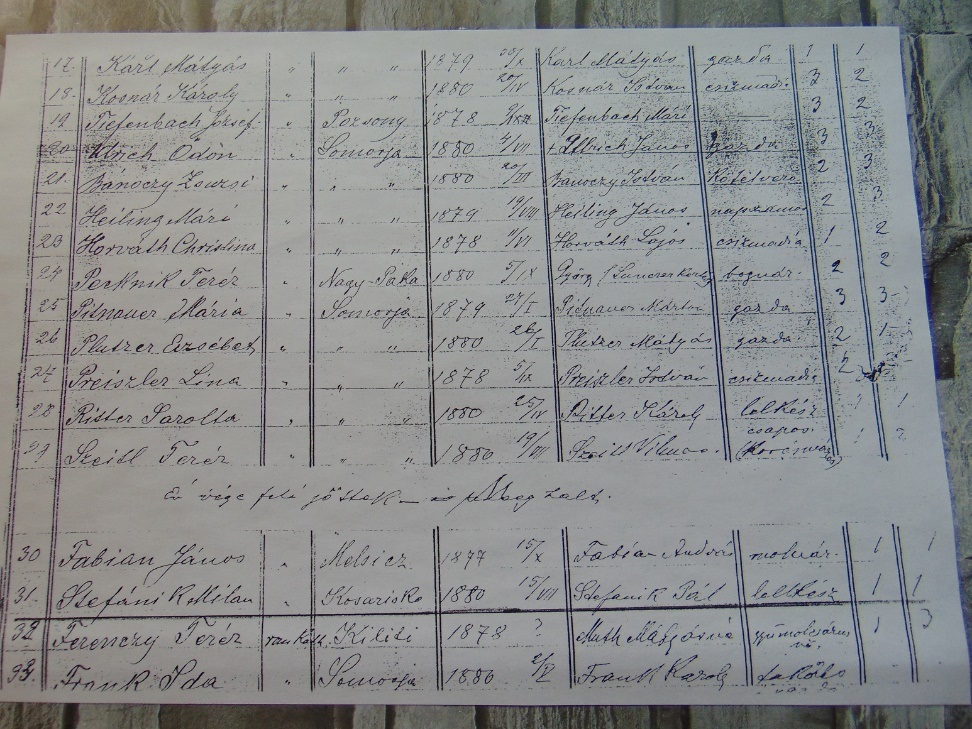 17. Karl Mátyás " " " 1879 Karl Mátyás gazda 1 1
18. Kosnár Károly " " " 1880 20/IV Kosnár István csizmadi 3 2
19 Tiefenbach József " Pozsony 1878 Tiefenbach Mári 3 2
20 Ulrich Ödön " Somorja 1880 4/VII + Ullrich János gazda 3 3
21. Bánóczy Zsuzsi " " " 1880 20/III Bánóczy István 2 3
22 Heiling Mári " " " 1879 19/VIII Heiling János napszámos 2 3
23 Horváth Christina " " " 1878 11/VI Horváth Lajos csizmadia 1 2
24 Perknik Teréz " Nagy-Paka 1880 5/IX György bognár. 2 2
25 Pitnauer Mária " Somorja 1879 27/I Pitnauer Márton gazda 3 3
26 Plutzer Erzsébet " " " 1880 26/I Plutzer Mátyás gazda 2 1
27 Preiszler Lina " " " 1878 5/IX Preiszler István csizmadia 2
28 Ritter Sarolta " " " 1880 25/IV Ritter Károly lelkész 1 1
29 Szeitl Teréz " " " 1880 19/VII Szeitl Vilmos. csapos 1 2
Év vége felé jöttek
30 Fabian János " Melsicz 1877 15/X Fábián András molnár. 1 1
31. Stefánik Milan " Kosarisko 1880 15/VII Stefanik Pál lelkész 1 1
32 Ferenczy Teréz rom. kath. Kiliti 1878 ? Muth Mátyásné 1 3
33. Frank Ida " Somorja 1880 2/V Frank Karoly